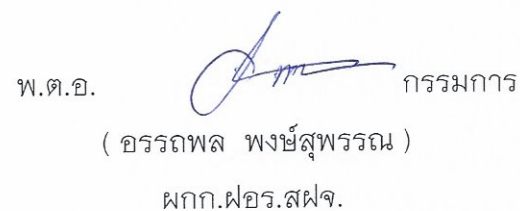 พ.ต.อ. กรรมการ
( อรรถพล พงษ์สุพรรณ )
ผกก.ฝอร.สฝจ.